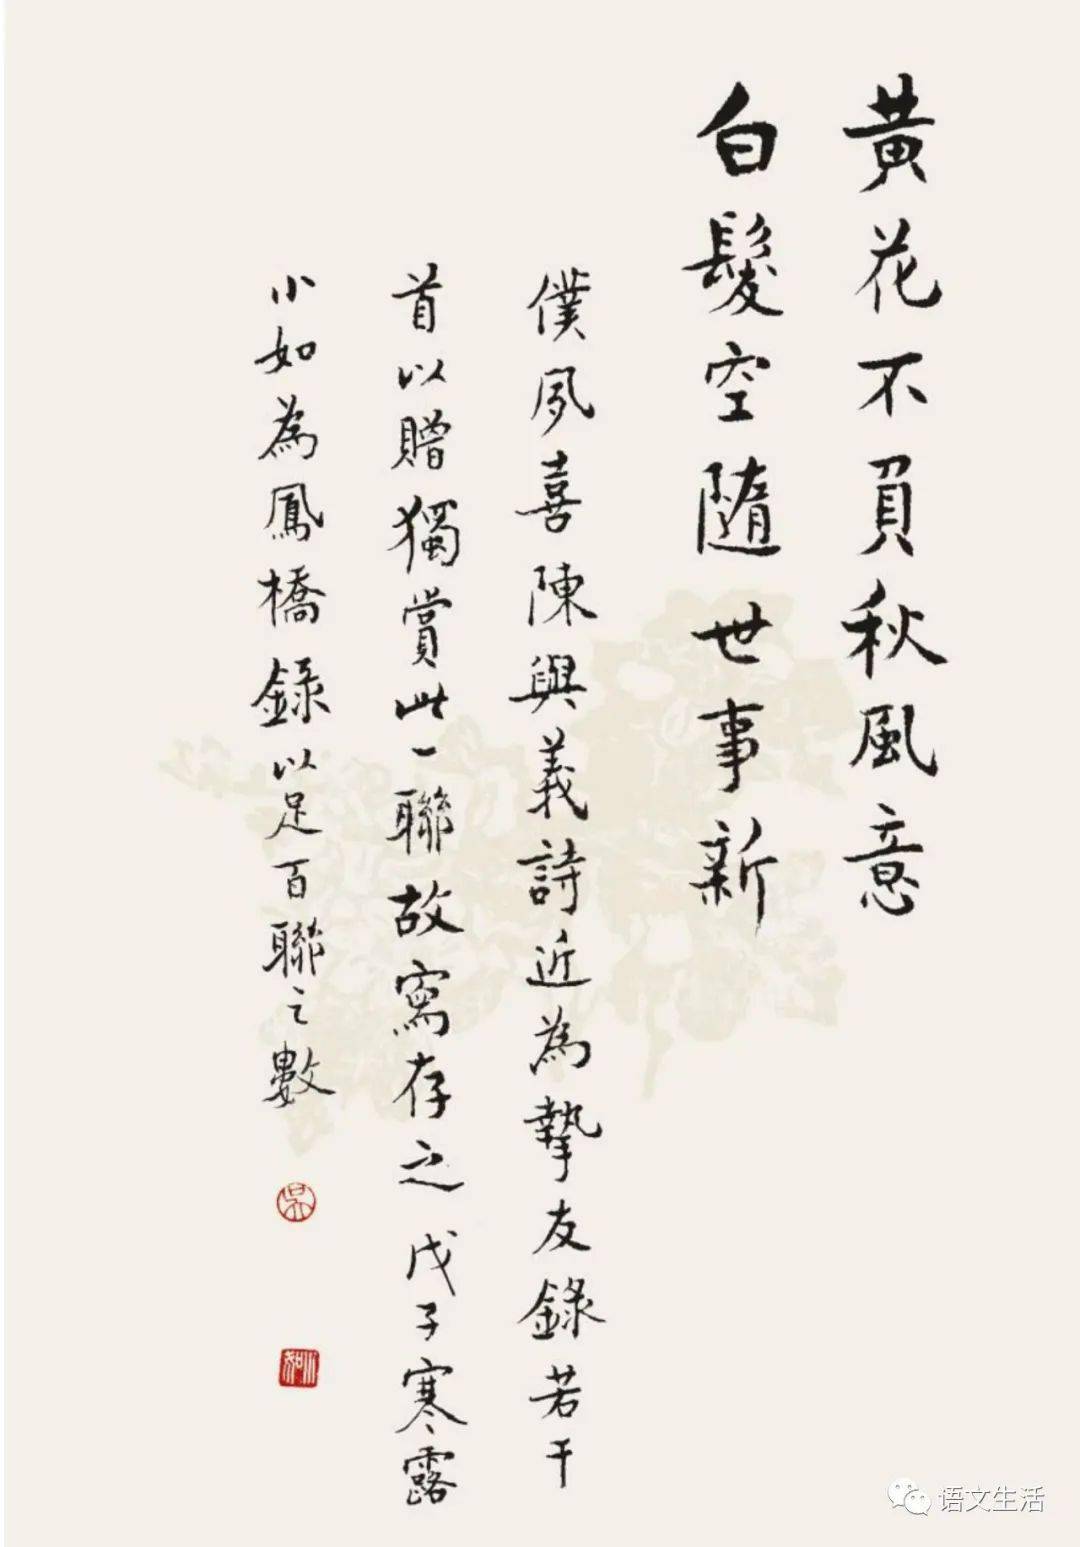 黄花不負秋風意
白髮空隨世事新
僕夙喜陳與義詩近為摯友錄若干
首以贈獨賞此一聯故寫存之戊子寒露
小如為鳳橋錄以足百聯之數
吴
小如
语文生活